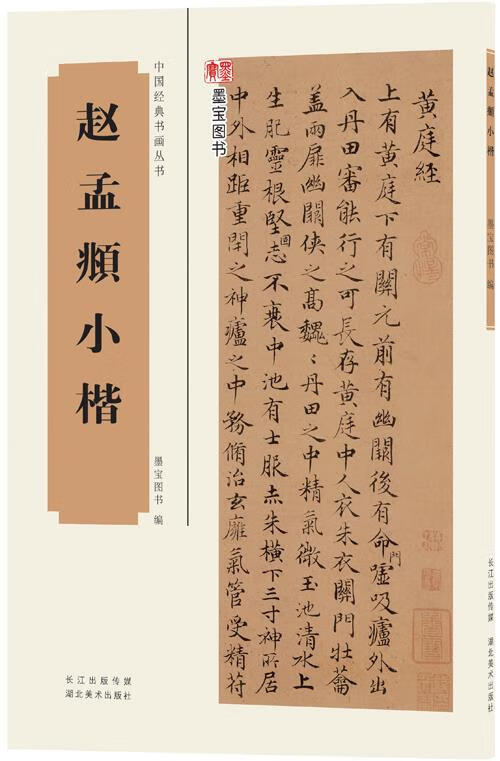 赵孟頫小楷
中国经典书画丛书
墨宝图书 编
长江出版传媒
湖北美术出版社
墨宝
墨宝图书
黄庭經
上有黄庭下有關元前有幽闕後有命門嘘吸廬外出
入丹田審能行之可長存黄庭中人衣朱衣關門壯籥
蓋兩扉幽闕俠之高巍〻丹田之中精氣微玉池清水上
生肥靈根堅志不衰中池有士服赤朱横下三寸神所居
中外相距重閉之神廬之中務脩治玄廱氣管受精符
赵孟頫小楷
墨宝图书 编
长江出版传媒
湖北美术出版社